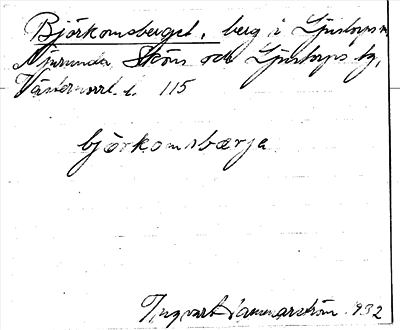 Björkomsberget, berg i Ljustorps sn
Njurunda, Sköns och Ljustorps tg,
Västernorrl. l. 115
björkomsbærja
Ingvar Hammarström 1932